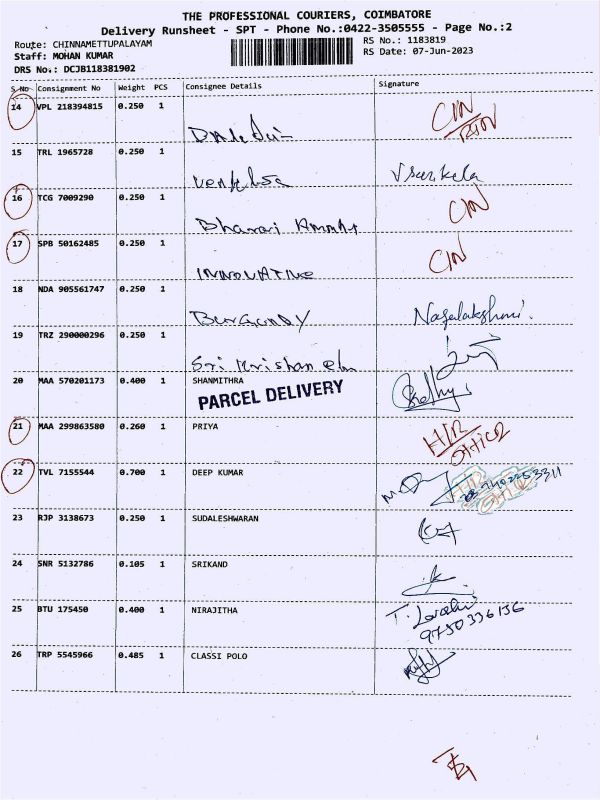 THE PROFESSIONAL COURIERS, COIMBATORE
Delivery Runsheet - SPT - Phone No.:0422-3505555 - Page No.:2
Route: CHINNAMETTUPALAYAM
RS No.: 1183819
Staff: MOHAN KUMAR
RS Date: 07-Jun-2023
DRS No.: DCJB118381902
S.No Consignment No Weight PCS Consignee Details Signature
14 VPL 218394815 0.250 1
CIN
15 TRL 1965728 0.250 1
16 TCG 7009290 0.250 1 CIN
17 SPB 50162485 0.250 1 CIN
INNOVATIVE
18 NDA 905561747 0.250 1 Nagalakshmi.
Burgundy
19 TRZ 290000296 0.250 1
Sri Krishan
20 MAA 570201173 0.400 1 SHANMITHRA
PARCEL DELIVERY
21 MAA 299863580 0.260 1 PRIYA H/R
OFFICE
22 TVL 7155544 0.700 1 DEEP KUMAR
23 RJP 3138673 0.250 1 SUDALESHWARAN
24 SNR 5132786 0.105 1 SRIKAND
25 BTU 175450 0.400 1 NIRAJITHA
9750336136
26 TRP 5545966 0.485 1 CLASSI POLO